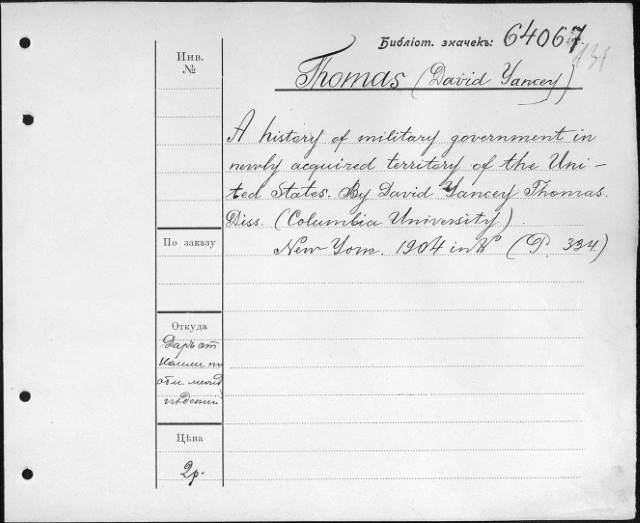 Библіот. значекъ: 64067
131
Инв.
№
Thomas (David Yancey)
A history of military government in
newly acquired territory of the Uni-
ted States. By David Yancey Thomas.
Diss. (Columbia University).
New York. 1904 in 8° (P. 334.)
По заказу
Откуда
Даръ от
Цѣна
2р.